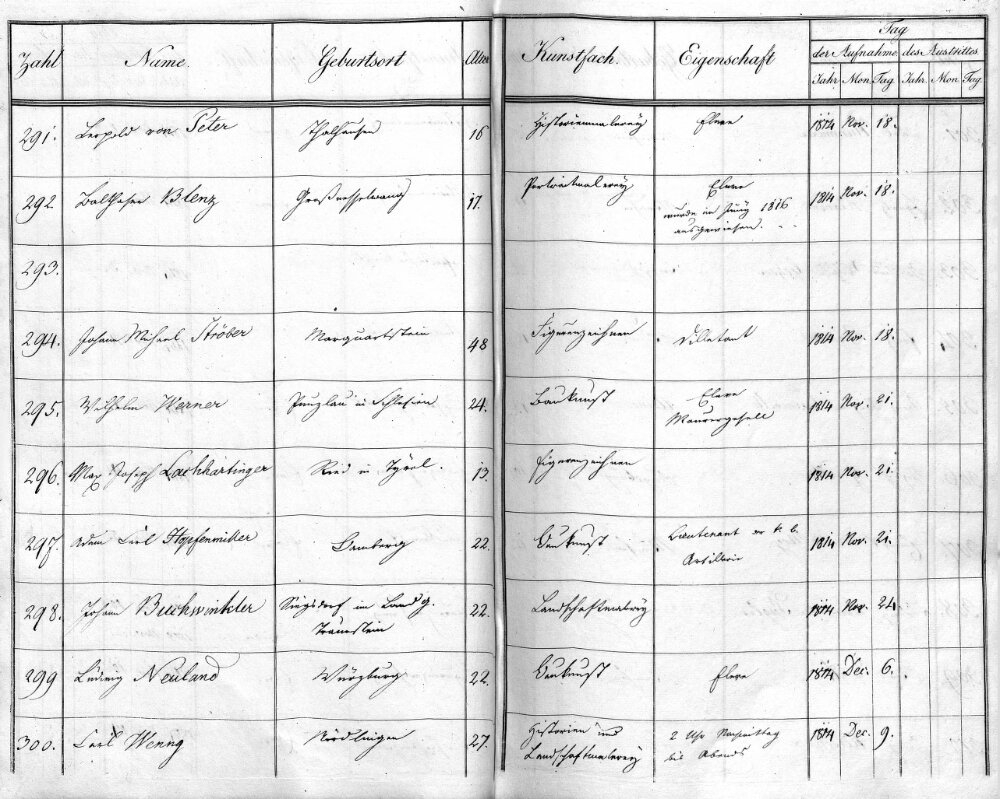 Zahl Name Geburtsort Alter Kunstfach. Eigenschaft Tag
der Aufnahme des Austrittes
Jahr Mon Tag Jahr. Mon Tag
291. Leopold von Peter Thalhausen 16 Historienmalerey Eleve 1814 Nov. 18.
292. Balthasar Blenz Großnesselwang 17. Portraitmalerey Eleve 1814 Nov. 18.
wurde im Juny 1816
ausgewiesen.
293.
294. Johann Michael Ströber Marquartstein 48 Figurenzeichnen Dilletant 1814 Nov. 18.
295. Wilhelm Werner Punzlau in Schlesien 24. Baukunst Eleve 1814 Nov. 21.
Maurergesell
296. Max Joseph Lachhartinger Ried in Tyrol. 13. Figurenzeichnen 1814 Nov. 21.
297. Adam Carl Hopfenmiller Bamberg 22. Baukunst Lieutenant 1814 Nov. 21.
Artillerie
298. Johann Buchwinkler Siegsdorf im Landg. 22. Landschaftmalerey 1814 Nov. 24.
Traunstein
299 Ludwig Neuland Würzburg 22. Baukunst Eleve 1814 Dec. 6.
300. Carl Wenng Nördlingen 27. Historien und 2 Uhr Nachmittag 1814 Dec. 9.
Landschaftmalerey bis Abends